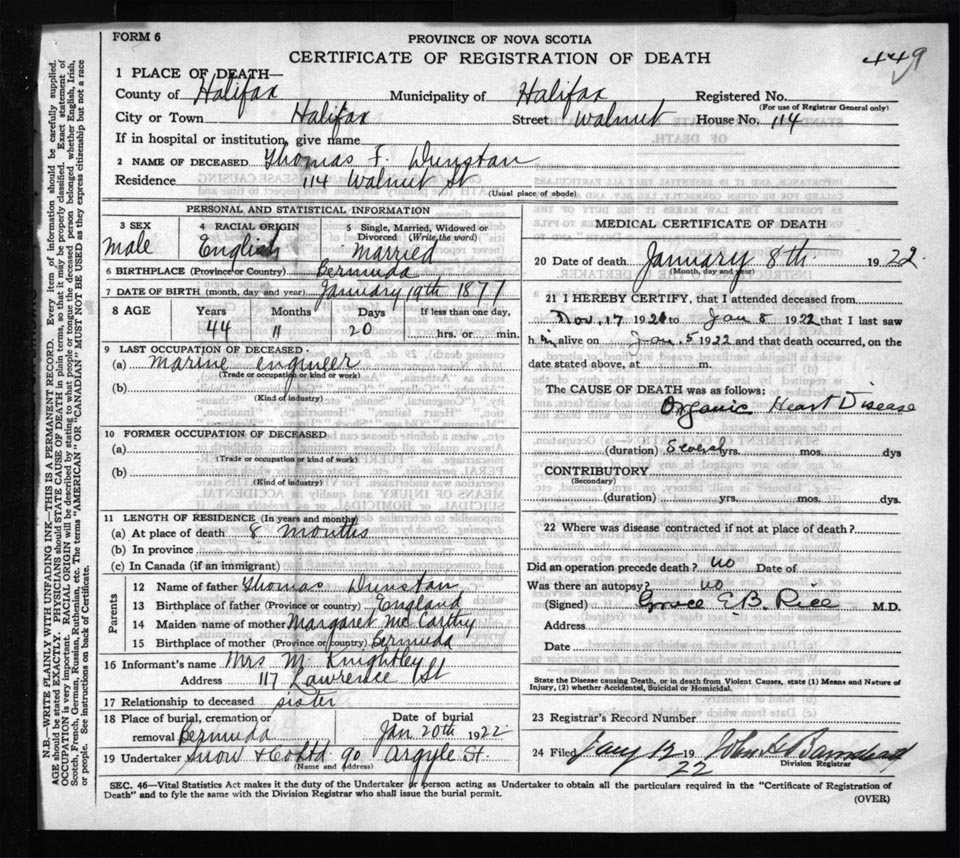 FORM 6
PROVINCE OF NOVA SCOTIA
CERTIFICATE OF REGISTRATION OF DEATH
449
1 PLACE OF DEATH—
County of Halifax Municipality of Halifax Registered No.
(For use of Registrar General only)
City or Town Halifax Street Walnut House No. 114
If in hospital or institution, give name
2 NAME OF DECEASED Thomas F. Dunstan
Residence 114 Walnut St
(Usual place of abode)
PERSONAL AND STATISTICAL INFORMATION
3 SEX 4 RACIAL ORIGIN 5 Single, Married, Widowed or Divorced (Write the word)
male English married
6 BIRTHPLACE (Province or Country) Bermuda
7 DATE OF BIRTH (month, day and year) January 19th 1877
8 AGE Years Months Days If less than one day,
44 11 20 hrs. or min.
9 LAST OCCUPATION OF DECEASED
(a) Marine engineer
(Trade or occupation or kind or work)
(b)
(Kind of industry)
10 FORMER OCCUPATION OF DECEASED
(a)
(Trade or occupation or kind of work)
(b)
(Kind of industry)
11 LENGTH OF RESIDENCE (In years and months)
(a) At place of death 8 months
(b) In province
(c) In Canada (if an immigrant)
Parents
12 Name of father Thomas Dunstan
13 Birthplace of father (Province or country) England
14 Maiden name of mother Margaret McCarthy
15 Birthplace of mother (Province or country) Bermuda
16 Informant's name Mrs M. Knightley
Address 117 Lawrence St
17 Relationship to deceased sister
18 Place of burial, cremation or Date of burial
removal Bermuda Jan 20th 1922
19 Undertaker Snow & Co Ltd 90 Argyle St.
(Name and Address)
MEDICAL CERTIFICATE OF DEATH
20 Date of death January 8th 1922
(Month, day and year)
21 I HEREBY CERTIFY, that I attended deceased from
Nov. 17 1921 to Jan 8 1922 that I last saw
him alive on Jan. 5 1922 and that death occurred, on the
date stated above, at m.
The CAUSE OF DEATH was as follows:
Organic Heart Disease
(duration) Several yrs. mos. dys
CONTRIBUTORY
(Secondary)
(duration) yrs. mos. dys.
22 Where was disease contracted if not at place of death?
Did an operation precede death? no Date of
Was there an autopsy? no
(Signed) Grace E.B. Rice M.D.
Address
Date
State the Disease causing Death, or in death from Violent Causes, state (1) Means and Nature of
Injury, (2) whether Accidental, Suicidal or Homicidal.
23 Registrar's Record Number
24 Filed Jany 12 19 22 John A. Barnstead
Division Registrar
SEC. 46—Vital Statistics Act makes it the duty of the Undertaker or person acting as Undertaker to obtain all the particulars required in the "Certificate of Registration of
Death" and to fyle the same with the Division Registrar who shall issue the burial permit.
(OVER)
N.B.—WRITE PLAINLY WITH UNFADING INK—THIS IS A PERMANENT RECORD. Every item of information should be carefully supplied.
AGE should be stated EXACTLY. PHYSICIANS should STATE CAUSE OF DEATH in plain terms, so that it may be properly classified. Exact statement of
OCCUPATION is very important. RACIAL ORIGIN will be described by stating to what people or tongue the deceased person belonged whether English, Irish,
Scotch, French, German, Russian, Ruthenian, etc. The terms "AMERICAN" OR "CANADIAN" MUST NOT BE USED as they express citizenship but not a race
or people. See instructions on back of Certificate.